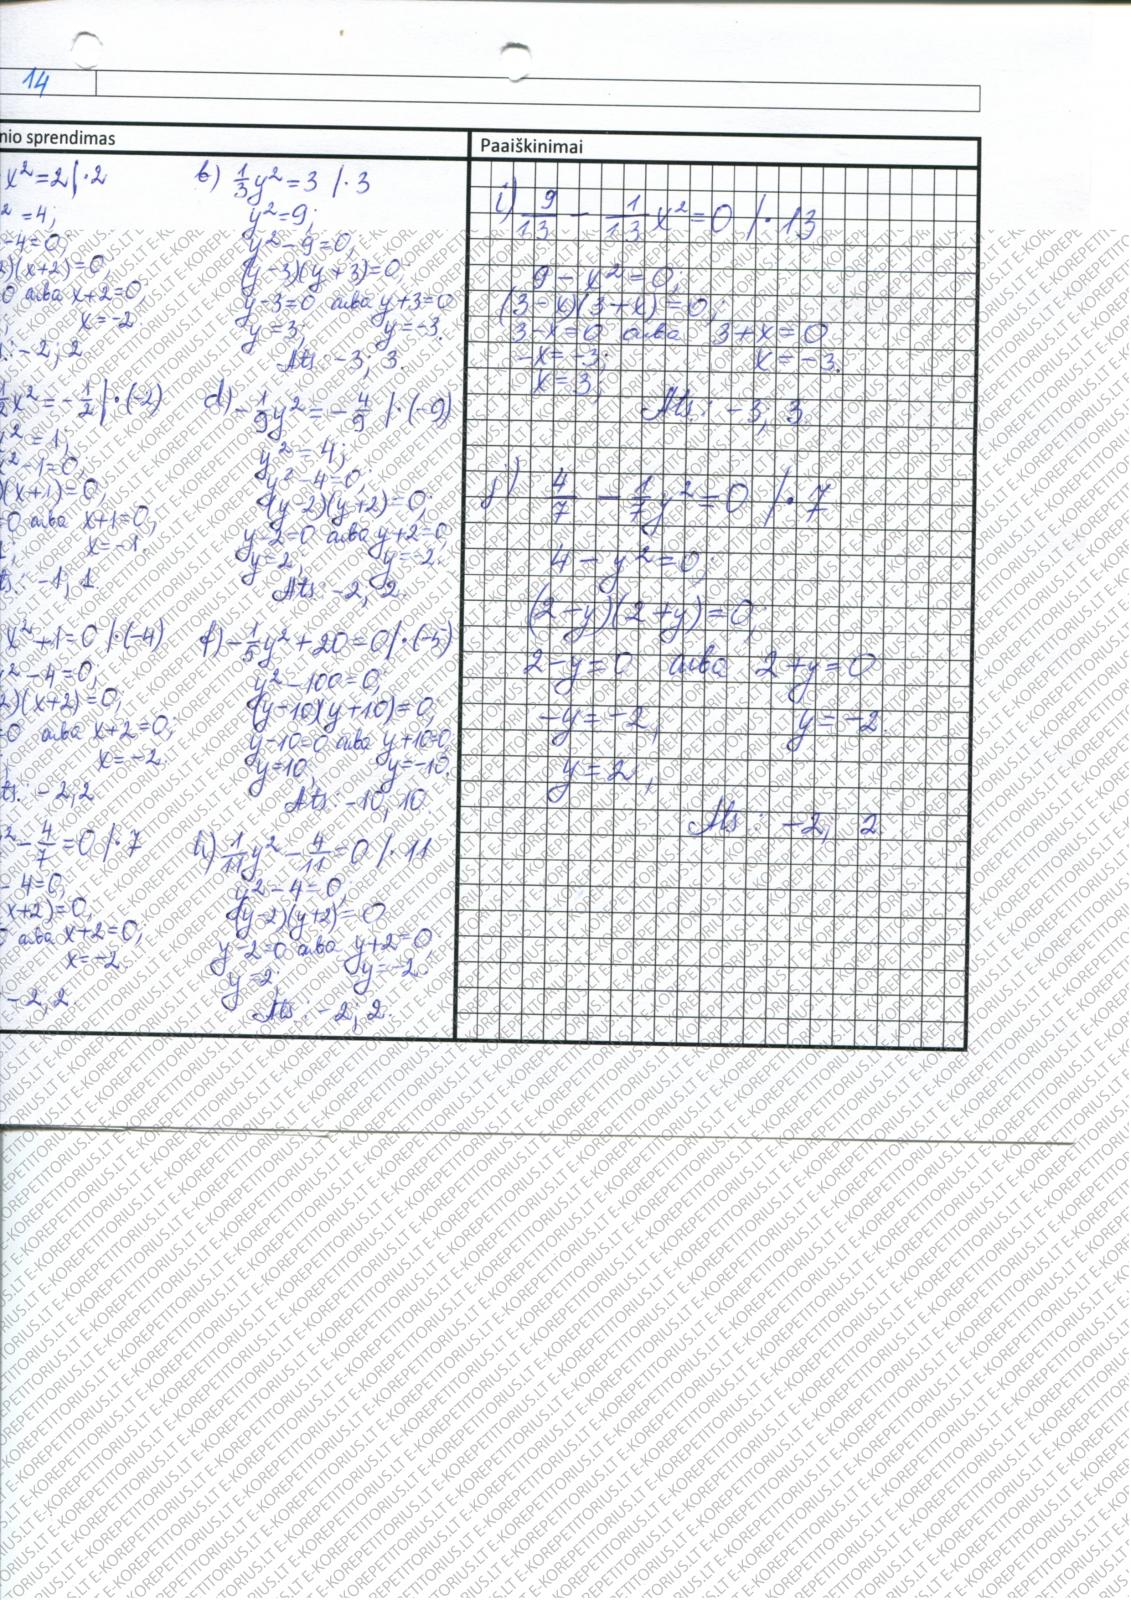 14
nio sprendimas
x²=2 |·2
² = 4;
-4=0;
2)(x+2)=0;
0 arba x+2=0;
x=-2.
: -2; 2
b) 1/3 y²=3 /·3
y²=9;
y²-9=0;
(y-3)(y+3)=0;
y-3=0 arba y+3=0
y=3; y=-3.
Ats: -3; 3.
1/2 x²=-1/2 |·(-2)
x²=1;
x²-1=0;
)(x+1)=0;
=0 arba x+1=0;
x=-1.
ts.: -1; 1
d) -1/9 y²=-4/9 /·(-9)
y²=4;
y²-4=0;
(y-2)(y+2)=0;
y-2=0 arba y+2=0;
y=2; y=-2.
Ats: -2; 2.
x²+1=0 /·(-4)
x²-4=0;
2)(x+2)=0;
=0 arba x+2=0;
x=-2
ts.: -2; 2
f) -1/5 y²+20=0 /·(-5)
y²-100=0;
(y-10)(y+10)=0;
y-10=0 arba y+10=0
y=10; y=-10.
Ats: -10; 10.
²-4/7=0 /·7
-4=0;
x+2)=0;
0 arba x+2=0;
x=-2.
-2; 2.
h) 1/11 y²-4/11=0 /·11
y²-4=0;
(y-2)(y+2)=0
y-2=0 arba y+2=0;
y=2; y=-2.
Ats.: -2; 2.
Paaiškinimai
i) 9/13 - 1/13 x²=0 /·13
9-x²=0;
(3-x)(3+x)=0;
3-x=0 arba 3+x=0
-x=-3; x=-3.
x=3;
Ats.: -3; 3.
j) 4/7 - 1/7 y²=0 /·7
4-y²=0;
(2-y)(2+y)=0;
2-y=0 arba 2+y=0
-y=-2; y=-2.
y=2;
Ats: -2; 2
E-KOREPETITORIUS.LT